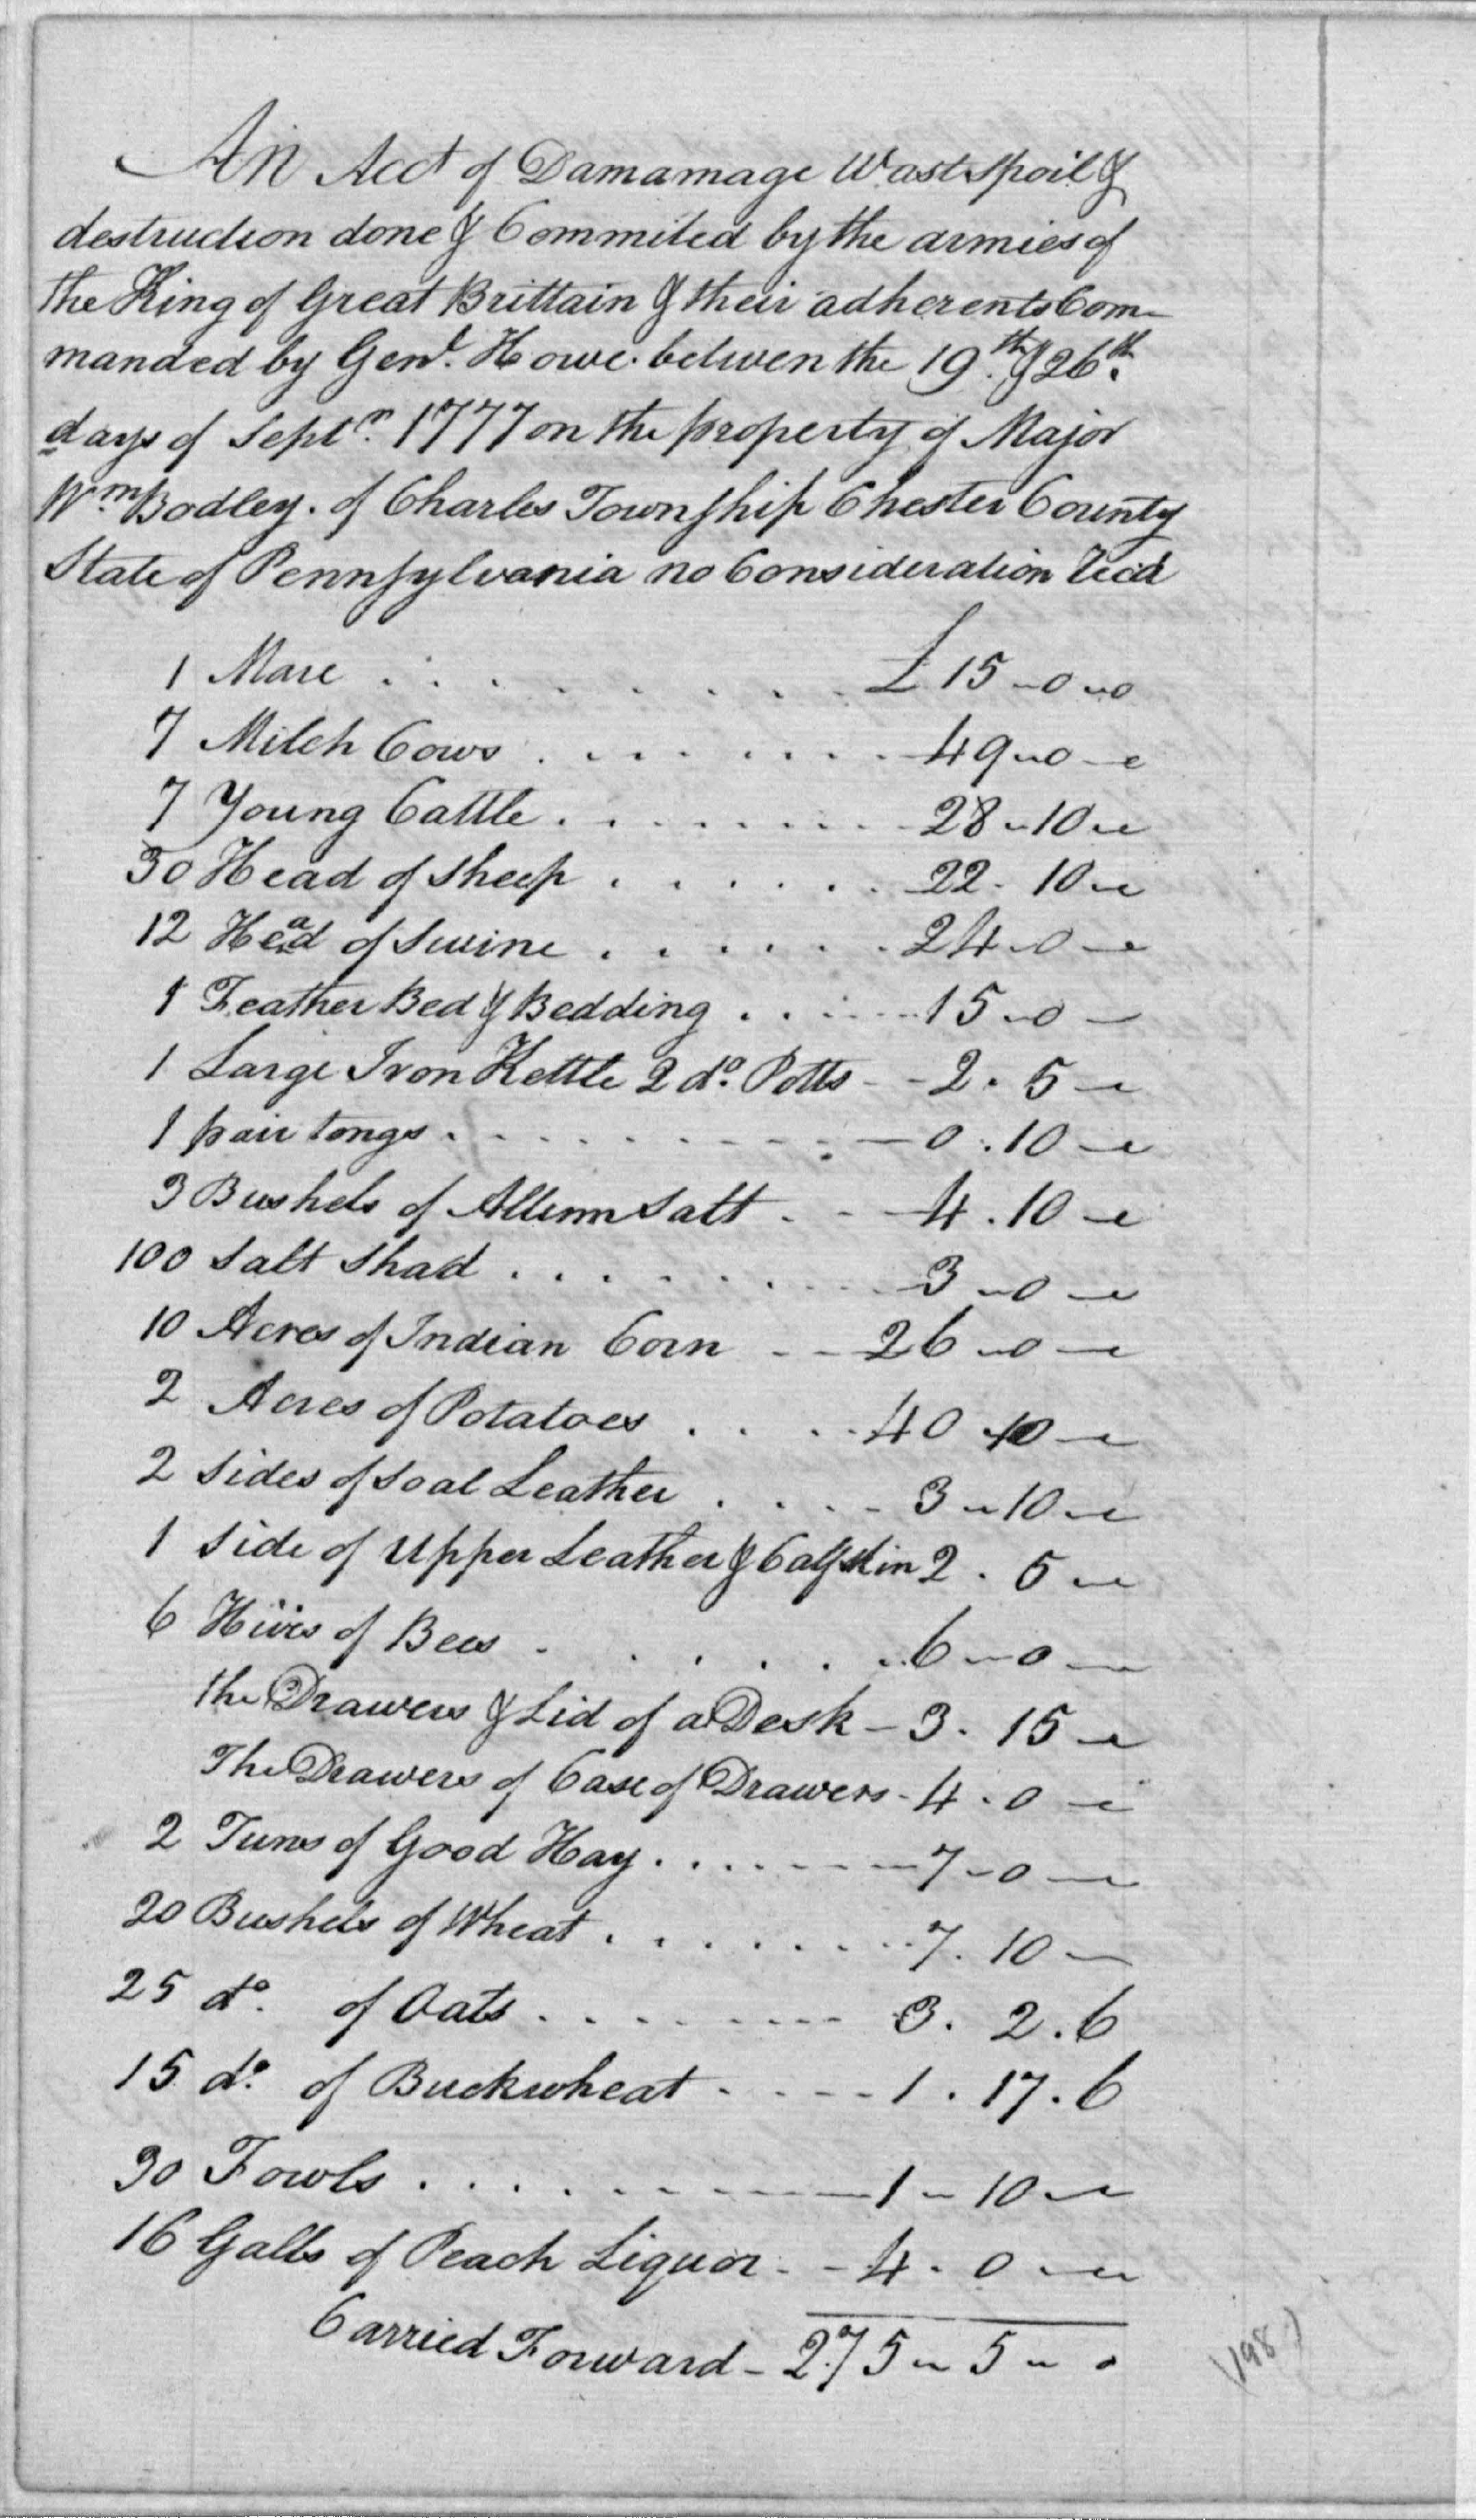 An Acct of Damamage Wast Spoil &
destruction done & Commited by the armies of
the King of Great Brittain & their adherents Com-
manded by Genl. Howe. between the 19th. & 26th.
days of Septr. 1777 on the property of Major
Wm. Bodley. of Charles Township Chester County
State of Pennsylvania no Consideration Recd
1 Mare . . . . . . . . £ 15 - 0 - 0
7 Milch Cows . . . . . . . 49 - 0 - 0
7 Young Cattle . . . . . . . 28 - 10 - 0
30 Head of Sheep . . . . . . 22 - 10 - 0
12 Head of Swine . . . . . . 24 - 0 - 0
1 Feather Bed & Bedding . . . . 15 - 0 -
1 Large Iron Kettle 2 do. Potts - - 2 . 5 - 0
1 pair tongs . . . . . . . . 0 . 10 - 0
3 Bushels of Allumn Salt . - - 4 . 10 - 0
100 Salt Shad . . . . . . . . 3 - 0 - 0
10 Acres of Indian Corn - - 26 - 0 - 0
2 Acres of Potatoes . . . . 40 - 10 - 0
2 Sides of Soal Leather . . . - 3 - 10 - 0
1 Side of Upper Leather & Calfskin 2 . 5 - 0
6 Hives of Bees . . . . . . 6 - 0 -
the Drawers & Lid of a Desk - 3 . 15 - 0
The Drawers of Case of Drawers - 4 . 0 - 0
2 Tuns of Good Hay . . . . . 7 - 0 - 0
20 Bushels of Wheat . . . . . . 7 . 10 -
25 do. of Oats . . . . . . 3 . 2 . 6
15 do. of Buckwheat . - - - 1 . 17 . 6
30 Fowls . . . . . . . . 1 - 10 - 0
16 Galls of Peach Liquor . - 4 . 0 - 0
Carried Forward - 275 - 5 - 0
(198)